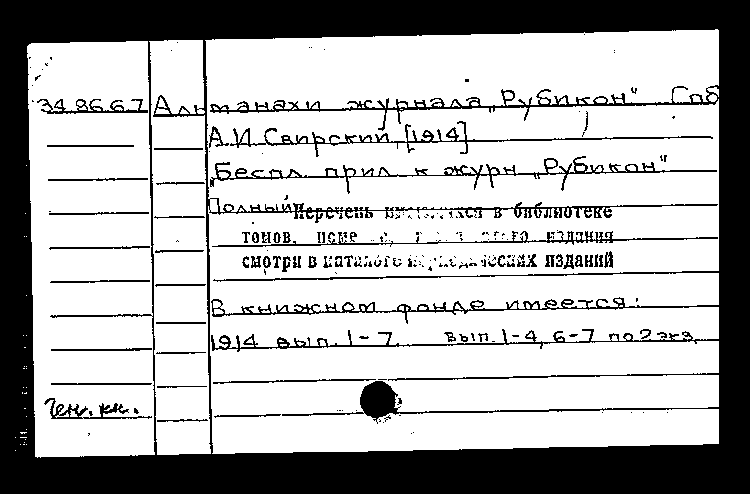 34.86.6.7 Альманахи журнала „Рубикон“ Спб
А.И. Свирский, [1914]
„Беспл. прил. к журн „Рубикон“
Полный перечень имеющихся в библиотеке
томов, номе этого издания
смотри в каталоге периодических изданий
В книжном фонде имеется:
1914 вып. 1-7. Вып. 1-4, 6-7 по 2 экз.
Ген. кн.